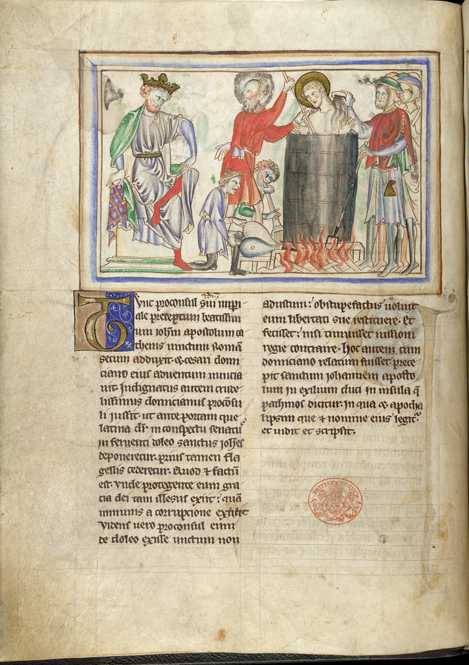 Tunc proconsul sui inperi
ale preceptum beatissim
um ioh'm apostolum ab
ephesus vinctum romam
secum adduxit et cesari domi
ciano eius adventum nuncia
vit. Indignatus autem crude
lissimus domicianus proconsu
li iussit ut ante portam que
latina dr in conspectu senatus
in ferventi doleo sanctus ioh'es
deponeretur. prius tamen fla
gellis cederetur. Quod & factum
est. unde protegente eum gra
cia dei tam illesus exiit: quam
inmunis a corrupcione
videns vero proconsul eum
de doleo exisse unctum non
adustum: obstupefactus voluit
eum libertati sue restituere. Et
fecisset: nisi timuisset iussioni
regie contraire. hoc autem cum
domiciano relatum fuisset prece
pit sanctum iohannem aposto
lum in exilium duci in insula que
pathmos dicitur. in qua & apocha
lipsim que ex nomine eius legitur
et vidit et scripsit.